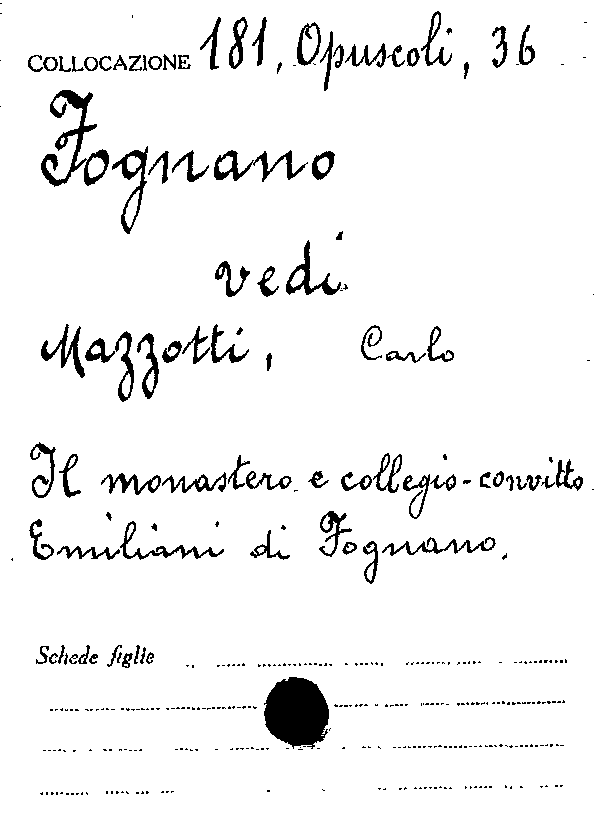 COLLOCAZIONE 181, Opuscoli, 36
Fognano
vedi
Mazzotti, Carlo
Il monastero e collegio-convitto
Emiliani di Fognano.
Schede figlie